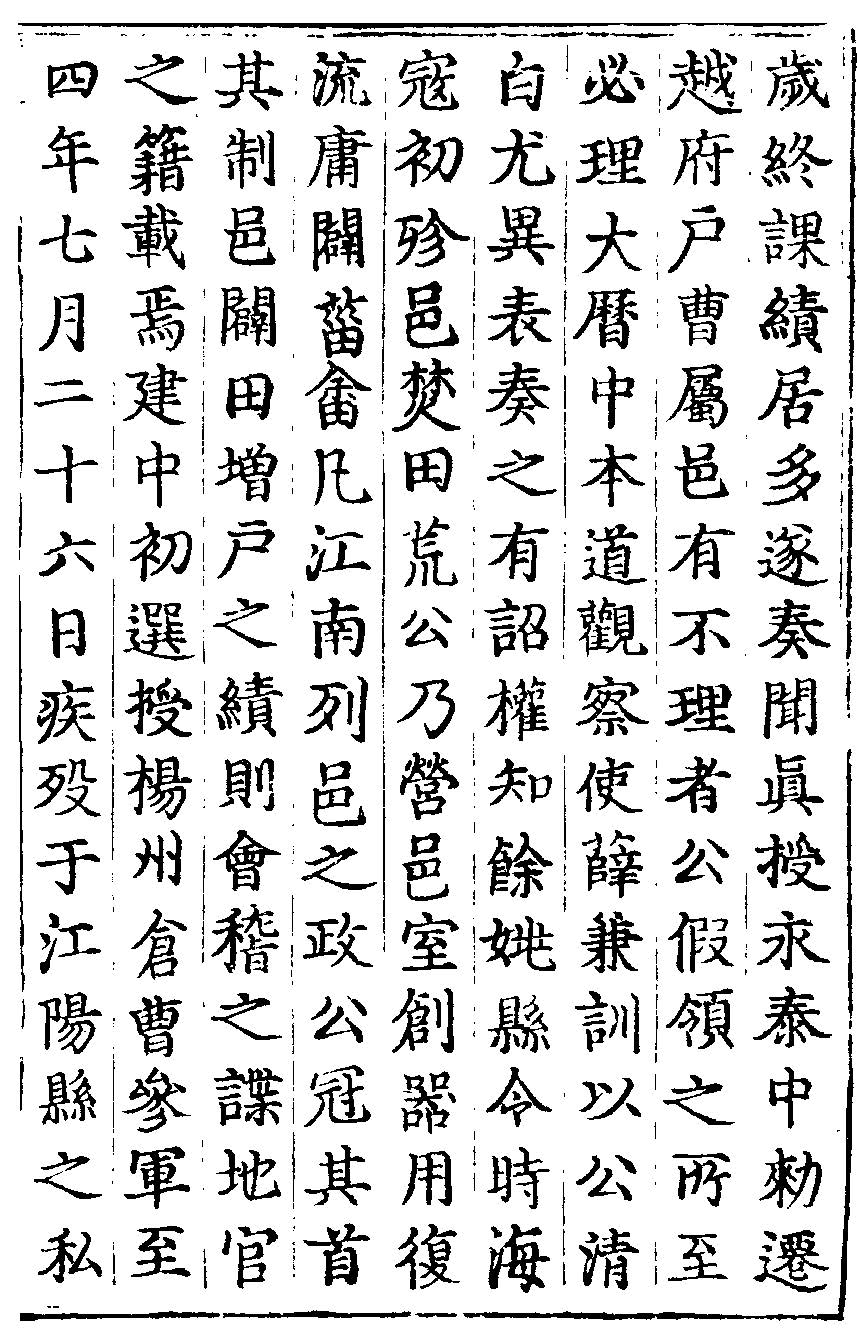 歲終課績居多遂奏聞眞授永泰中勑遷
越府戸曹屬邑有不理者公假領之所至
必理大曆中本道觀察使薛兼訓以公清
白尤異表奏之有詔權知餘姚縣令時海
寇初殄邑焚田荒公乃營邑室創器用復
流庸闢菑畬凡江南列邑之政公冠其首
其制邑闢田增戸之績則會稽之諜地官
之籍載焉建中初選授楊州倉曹參軍至
四年七月二十六日疾殁于江陽縣之私